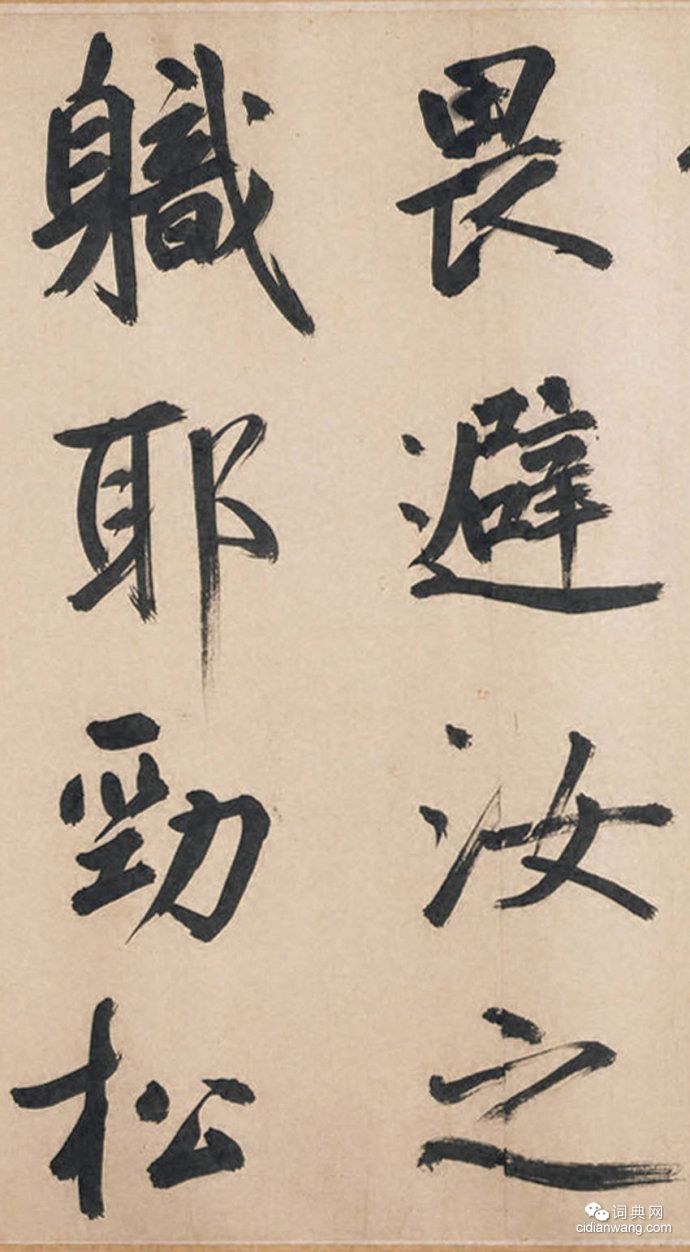 畏避汝之
軄耶勁松
词典网
cidianwang.com